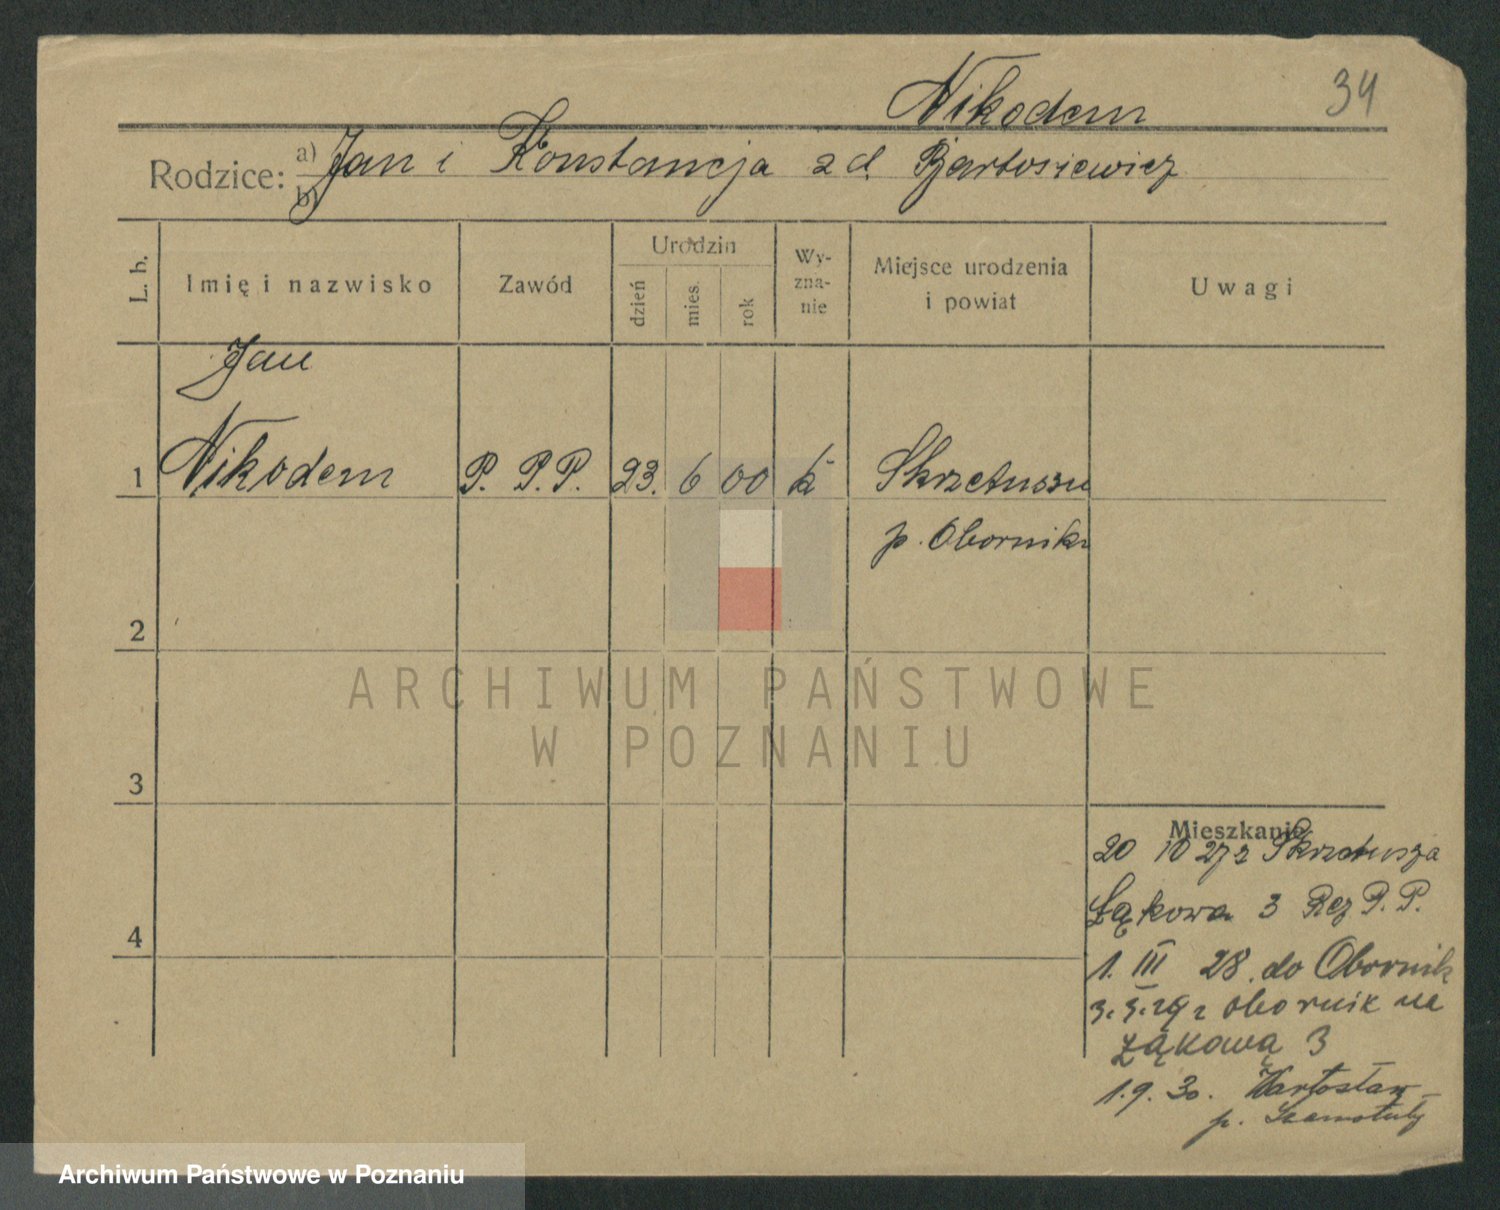 Nikodem
34
Rodzice: a) b) Jan i Konstancja z d. Bartosiewicz
L. b.
Imię i nazwisko
Zawód
Urodzin
dzień
mies.
rok
Wy-
zna-
nie
Miejsce urodzenia
i powiat
Uwagi
Jan
1 Nikodem P. P.P. 23. 6 00 k Skrzetuszu
p. Oborniki
2
ARCHIWUM PAŃSTWOWE
W POZNANIU
3
Mieszkanie
20 10 27 z Skrzetusza
Łąkowa 3 Rez P. P.
1. III 28. do Obornik
3. 3. 29 z Obornik na
Łąkową 3
1.9.30. Wartosław
p. Szamotuły
4
Archiwum Państwowe w Poznaniu